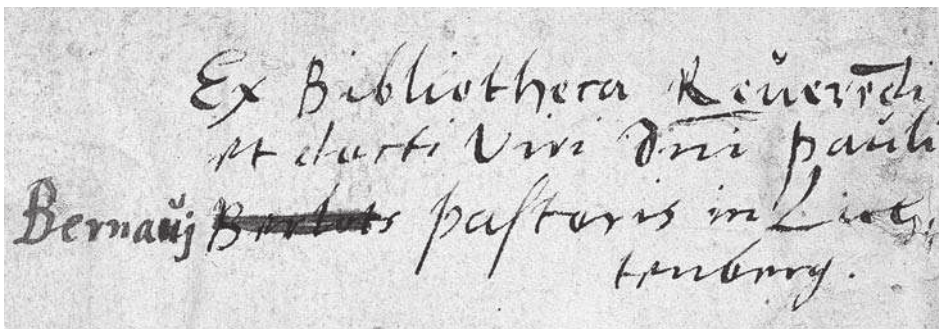 Ex Bibliotheca Reverēdi
et docti Viri Dn̄i Pauli
Bernauij pastoris in Liech-
tenberg.